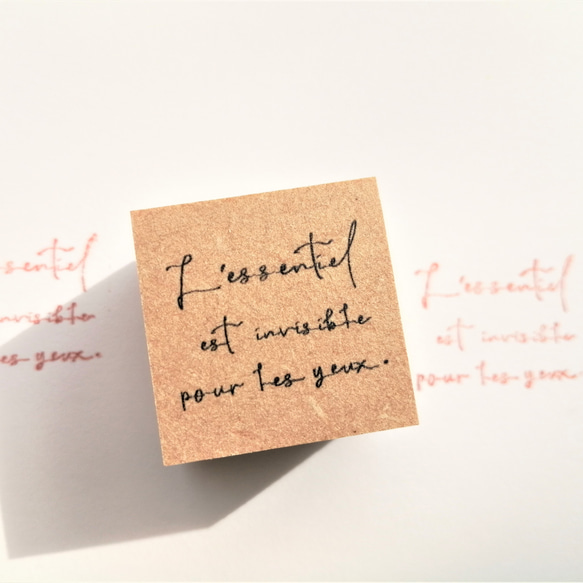 L'essentiel
est invisible
pour les yeux.
sentiel
invisible
es yeux.
L'essentiel
est invisible
pour les yeux.